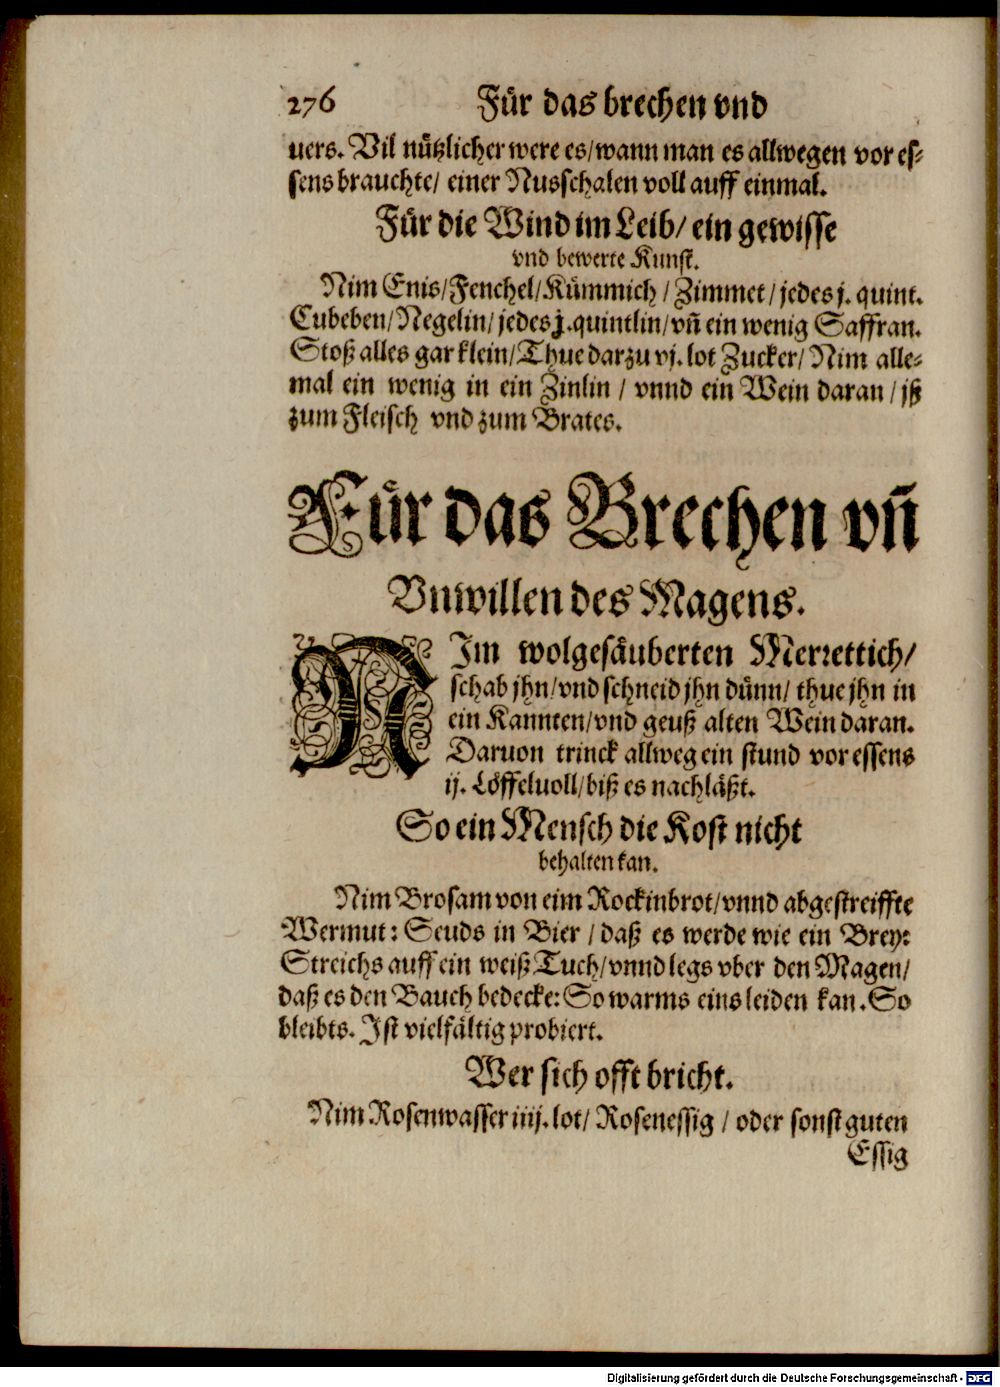 276 Für das brechen vnd
uers. Vil nützlicher were es/wann man es allwegen vor es-
sens brauchte/ einer Nusschalen voll auff einmal.
Für die Wind im Leib/ ein gewisse
vnd bewerte Kunst.
Nim Enis/Fenchel/Kümmich/ Zimmet/ jedes j. quint.
Cubeben/Negelin/ jedes j. quintlin/ vñ ein wenig Saffran.
Stoß alles gar klein/Thue darzu vj. lot Zucker/ Nim alle-
mal ein wenig in ein Zinlin / vnnd ein Wein daran / jß
zum Fleisch vnd zum Brates.
Für das Brechen vñ
Vnwillen des Magens.
NIm wolgesäuberten Merrettich/
schab jhn/vnd schneid jhn dünn/ thue jhn in
ein Kannten/vnd geuß alten Wein daran.
Daruon trinck allweg ein stund vor essens
ij. Löffeluoll/biß es nachläßt.
So ein Mensch die Kost nicht
behalten kan.
Nim Brosam von eim Rockinbrot/vnnd abgestreiffte
Wermut: Seuds in Bier / daß es werde wie ein Brey:
Streichs auff ein weiß Tuch/vnnd legs vber den Magen/
daß es den Bauch bedecke: So warms eins leiden kan. So
bleibts. Ist vielfältig probiert.
Wer sich offt bricht.
Nim Rosenwasser iiij. lot/ Rosenessig / oder sonst guten
Essig
Digitalisierung gefördert durch die Deutsche Forschungsgemeinschaft - DFG